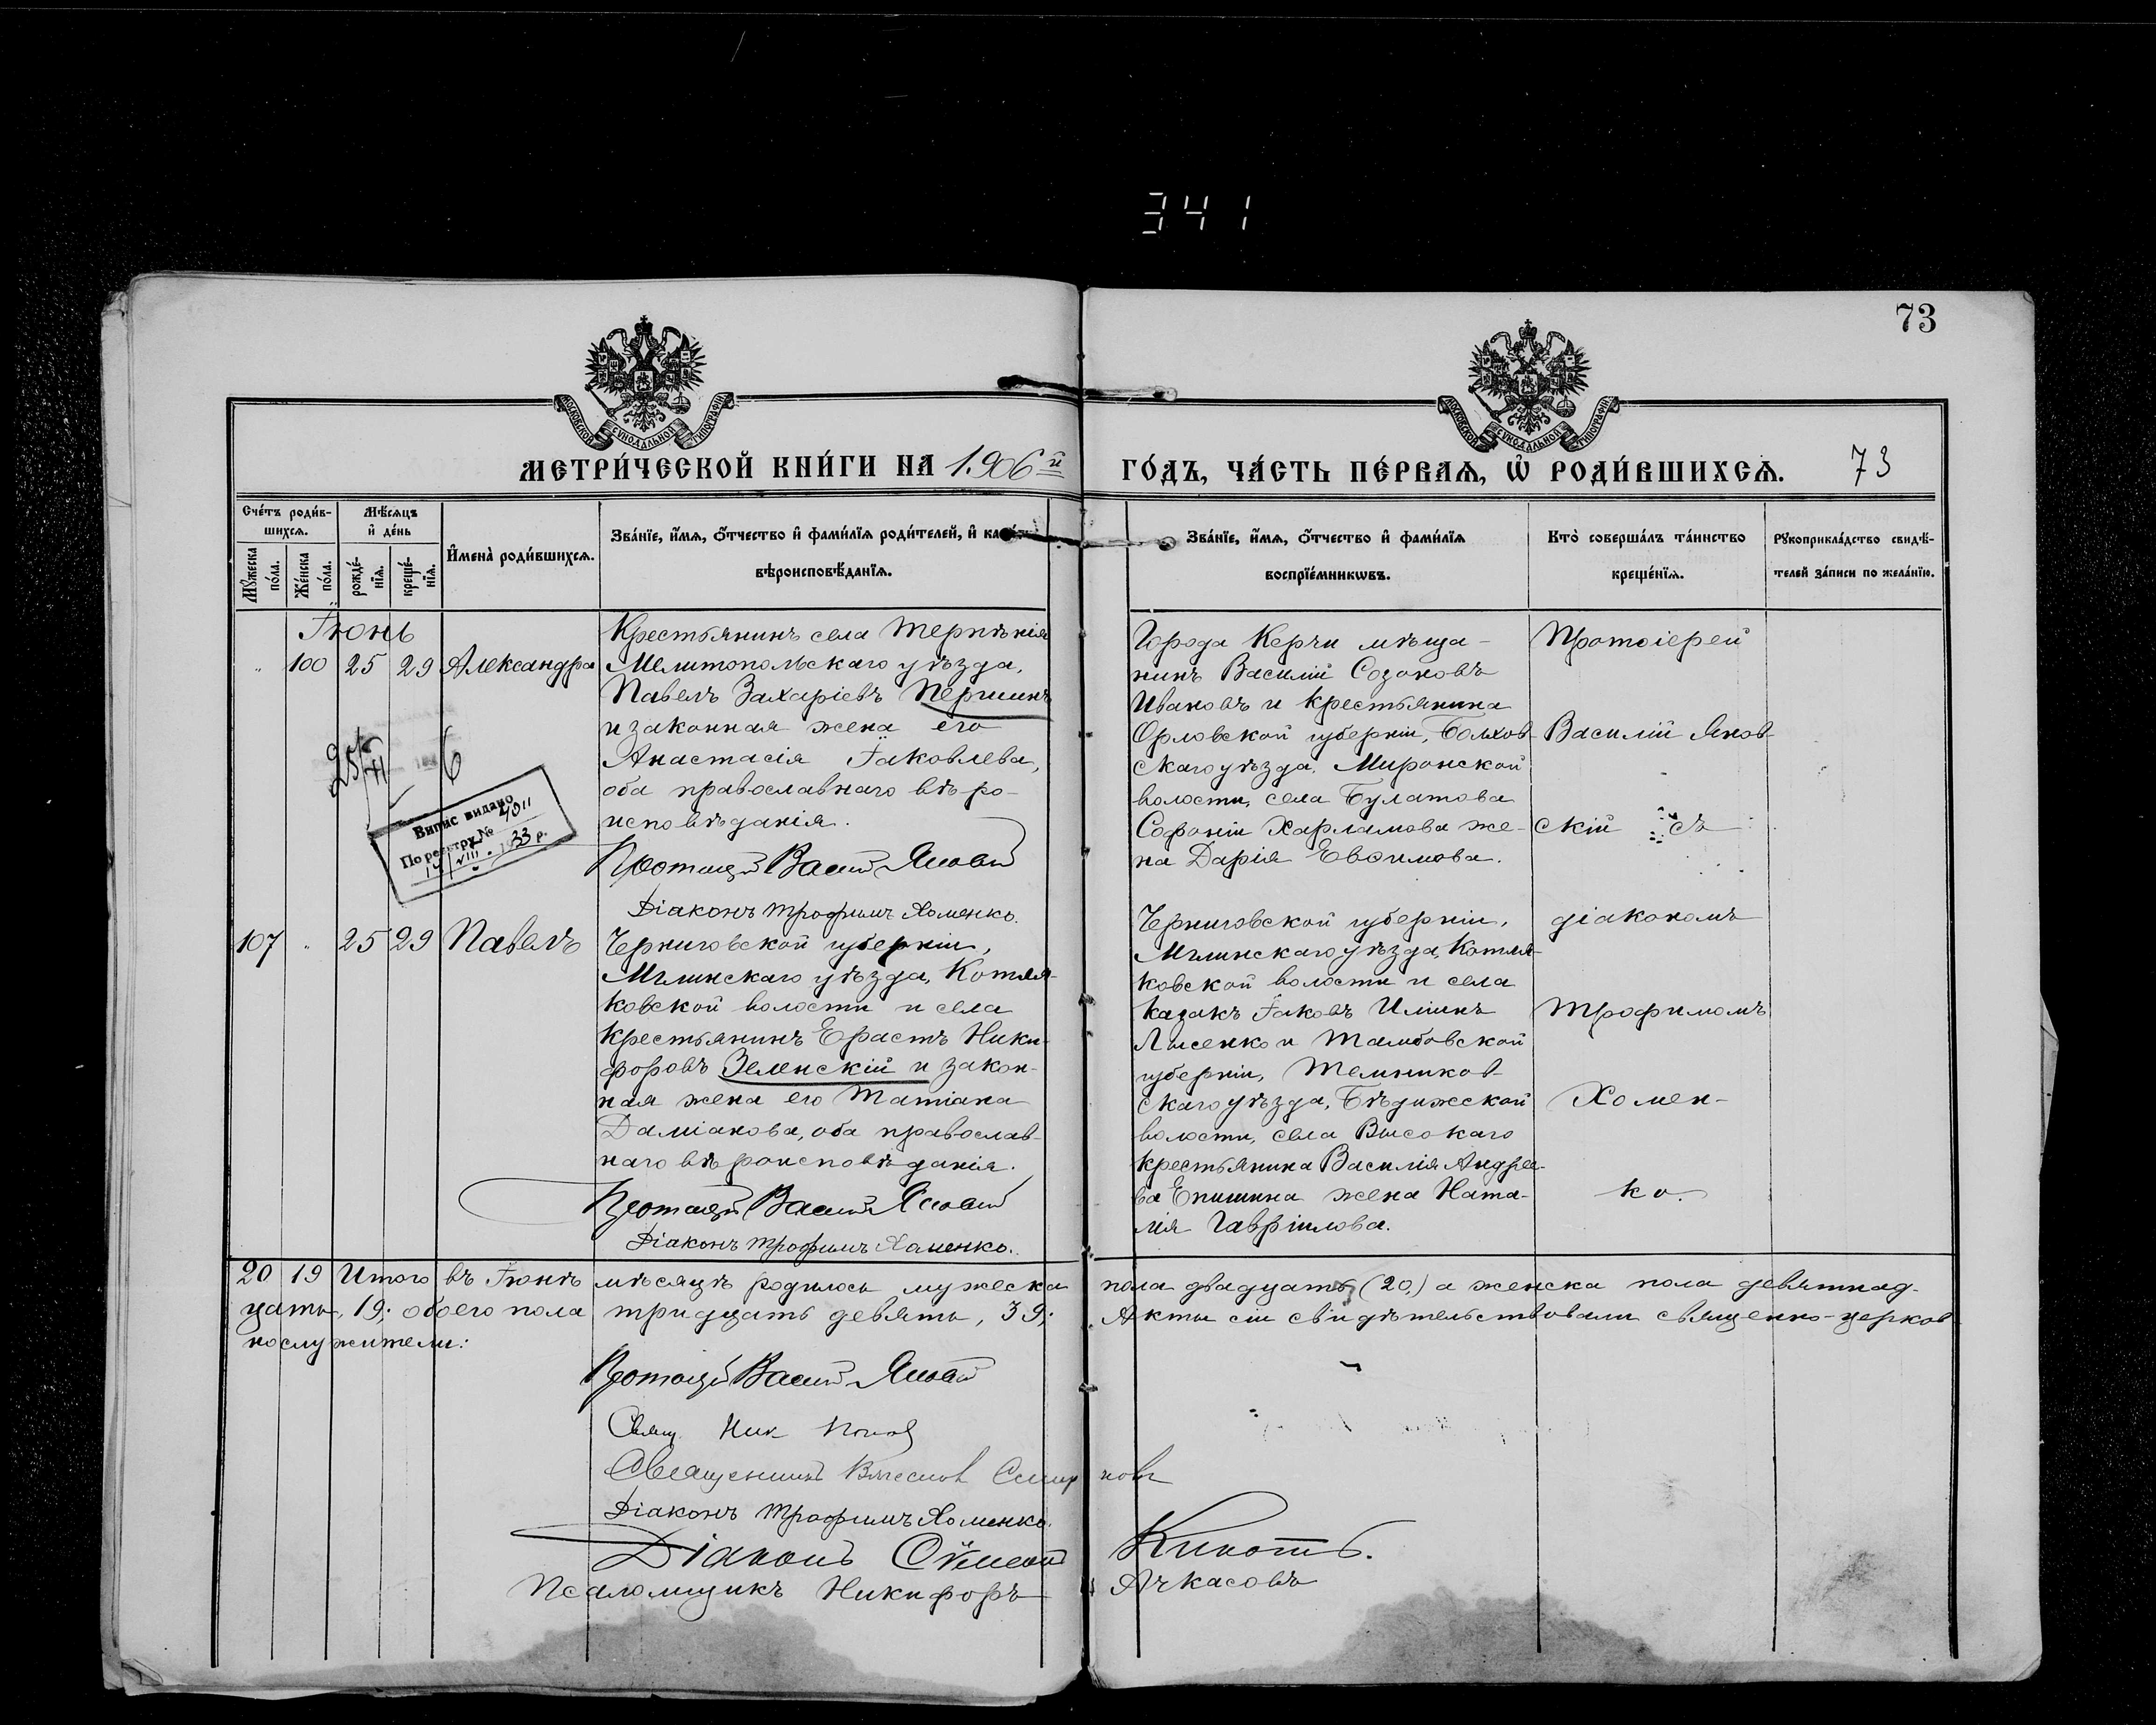 341
73
МОСКОВСКОЙ СѴНОДАЛЬНОЙ ТИПОГРАФІИ
МОСКОВСКОЙ СѴНОДАЛЬНОЙ ТИПОГРАФІИ
МЕТРИ́ЧЕСКОЙ КНИ́ГИ НА 1906й ГО́ДЪ, ЧА́СТЬ ПЕ́РВАѦ, Ѡ҆ РОДИ́ВШИХСѦ. 73
Сче́тъ роди́в-
шихсѧ.
Мꙋ́жеска по́ла.
Же́нска по́ла.
Мѣ́сѧцъ и҆ де́нь
рожде́-нїѧ.
креще́-нїѧ.
И҆мена̀ роди́вшихсѧ.
Зва́нїе, и҆́мѧ, ѻ҆́тчество и҆ фами́лїѧ роди́телей, и҆
вѣроисповѣ́данїѧ.
Зва́нїе, и҆́мѧ, ѻ҆́тчество и҆ фами́лїѧ
воспрїе́мникѡвъ.
Кто̀ соверша́лъ та́инство
креще́нїѧ.
Рꙋкоприкла́дство свидѣ́-
телей за́писи по жела́нїю.
Іюнь
" 100 25 29 Александра
Крестьянинъ села Терпѣнія
Мелитопольскаго уѣзда,
Павелъ Захаріевъ Першинъ
и законная жена его
Анастасія Іаковлева,
оба православнаго вѣро-
исповѣданія.
Протоіерей Василій Яновскій
Діаконъ Трофимъ Хоменко.
Города Керчи мѣща-
нинъ Василій Созоновъ
Ивановъ и крестьянина
Орловской губерніи, Болхов-
скаго уѣзда, Миронской
волости, села Булатова
Софоніи Харламова же-
на Дарія Евѳимова.
Протоіерей
Василій Янов-
скій съ
діакономъ
Трофимомъ
Хомен-
ко.
Випис видано
По реєстру № 4011
14/VIII. 1933 р.
107 " 25 29 Павелъ
Черниговской губерніи,
Мглинскаго уѣзда, Котля-
ковской волости и села
крестьянинъ Ерастъ Ники-
форовъ Зеленскій и закон-
ная жена его Татіана
Даміанова, оба православ-
наго вѣроисповѣданія.
Протоіерей Василій Яновскій
Діаконъ Трофимъ Хоменко.
Черниговской губерніи,
Мглинскаго уѣзда, Котля-
ковской волости и села
казакъ Іаковъ Илiинъ
Лысенко и Тамбовской
губерніи, Темников-
скаго уѣзда, Бѣдижеской
волости, села Высокаго
крестьянина Василія Андрее-
ва Епишина жена Ната-
лія Гавріилова.
20 19 Итого въ Іюнѣ мѣсяцѣ родилось мужеска пола двадцать (20,) а женска пола девятнад-
цать, 19; обоего пола тридцать девять, 39; Акты сіи свидѣтельствовали священно-церков-
нослужители:
Протоіерей Василій Яновскій
Свящ. Ник Попов
Священникъ Вячеслов Смирновъ
Діаконъ Трофимъ Хоменко.
Діаконъ Сѵмеонъ Кикоть.
Псаломщикъ Никифоръ Ачкасовъ